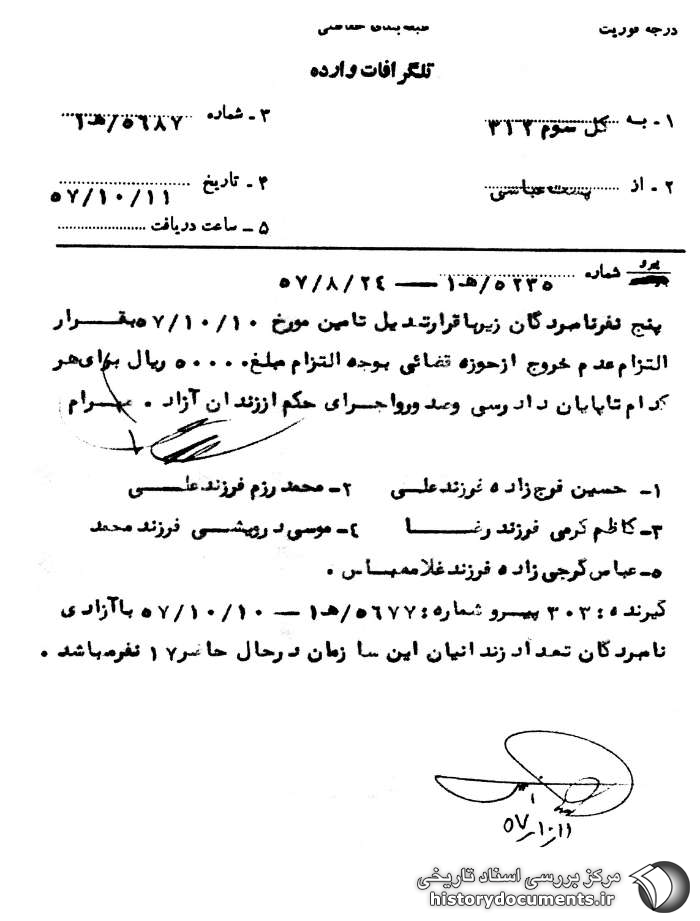 درجه فوریت
طبقه بندی حفاظتی
تلگرافات وارده
۱ - به کل سوم ۳۱۲
۳ - شماره ۵۶۸۷/هـ۱
۲ - از پست عباسی
۴ - تاریخ ۵۷/۱۰/۱۱
۵ - ساعت دریافت
پیرو شماره ۵۲۳۵/هـ۱ — ۵۷/۸/۲۴
پنج نفر نامبردگان زیر با قرار تبدیل تامین مورخ ۵۷/۱۰/۱۰ بقرار
التزام عدم خروج از حوزه قضائی بوجه التزام مبلغ ۵۰۰۰۰ ریال برای هر
کدام تا پایان دادرسی و صدور و اجرای حکم از زندان آزاد . بهرام
۱- حسین فرج زاده فرزند علی ۲- محمد رزم فرزند علی
۳- کاظم کرمی فرزند رضا ۴- موسی درویشی فرزند محمد
۵- عباس گرجی زاده فرزند غلامعباس .
گیرنده : ۳۰۲ پیرو شماره : ۵۶۷۷/هـ۱ — ۵۷/۱۰/۱۰ با آزادی
نامبردگان تعداد زندانیان این سازمان در حال حاضر ۱۷ نفر میباشد .
۵۷/۱۰/۱۱
مرکز بررسی اسناد تاریخی
historydocuments.ir